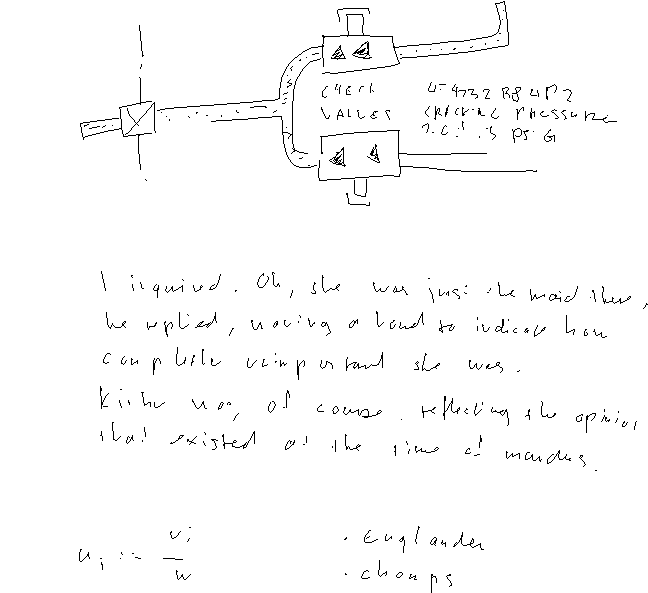 CHECK
VALVES
CRACKING PRESSURE
PSIG
I inquired. Oh, she was just the maid there,
he replied, moving a hand to indicate how
completely unimportant she was.
of course. reflecting the opinion
that existed at the time of
u_i := v_i / w
· Englander
· chomps